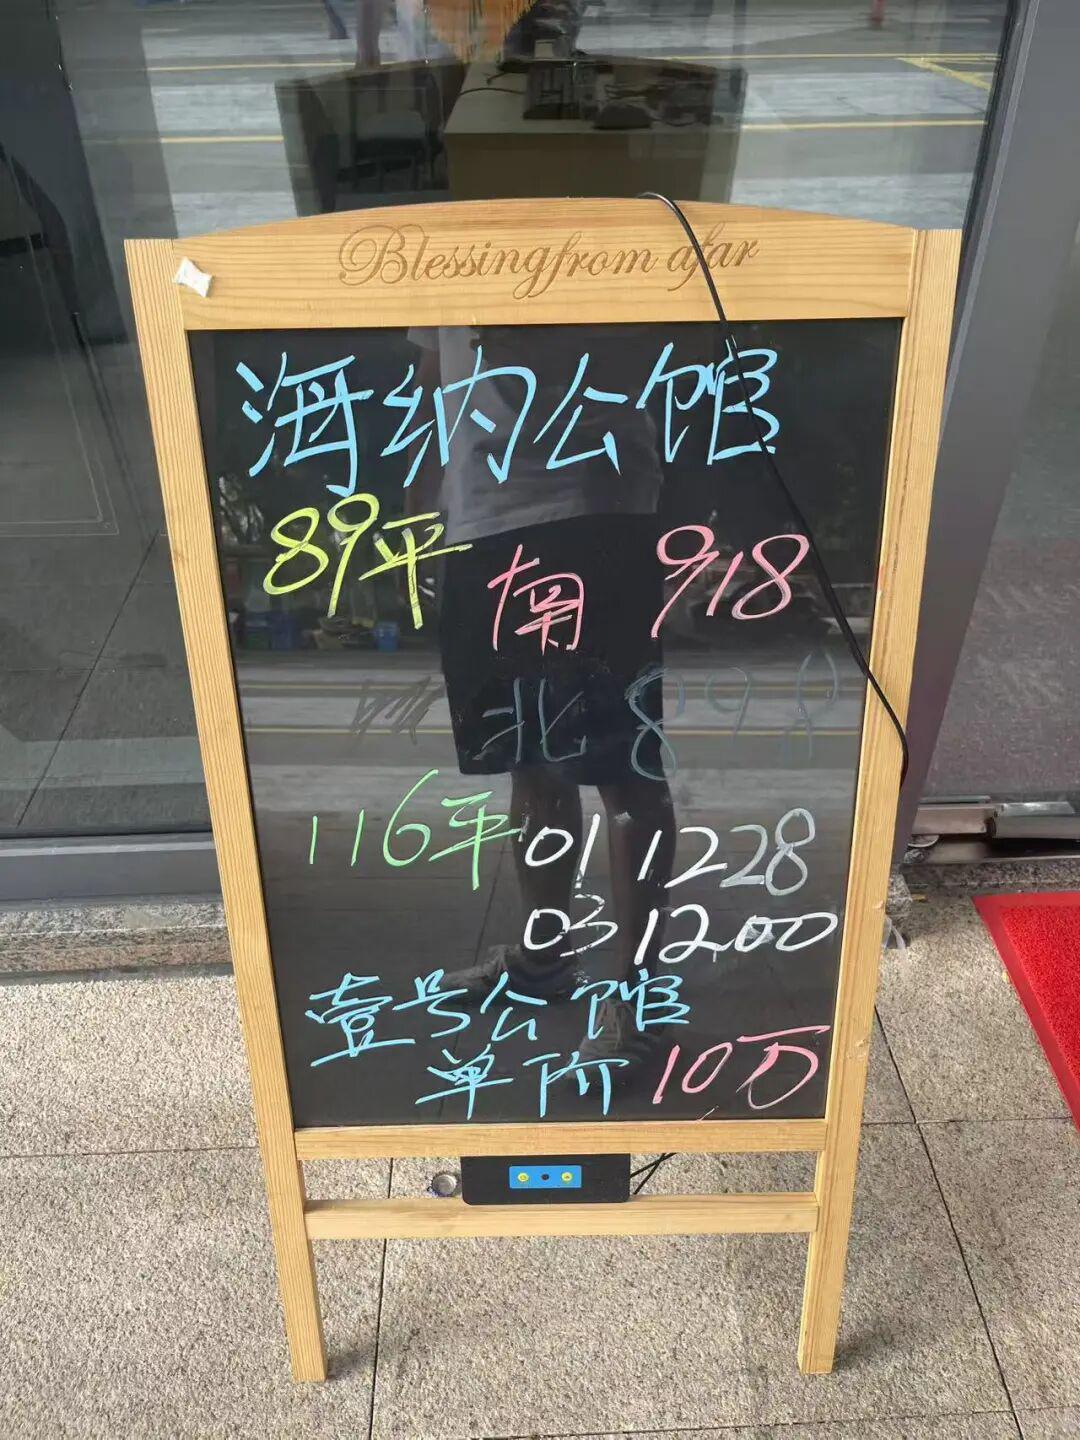 Blessing from afar
海纳公馆
89平 南 918
北 898
116平 01 1228
03 1200
壹号公馆
单价 10万